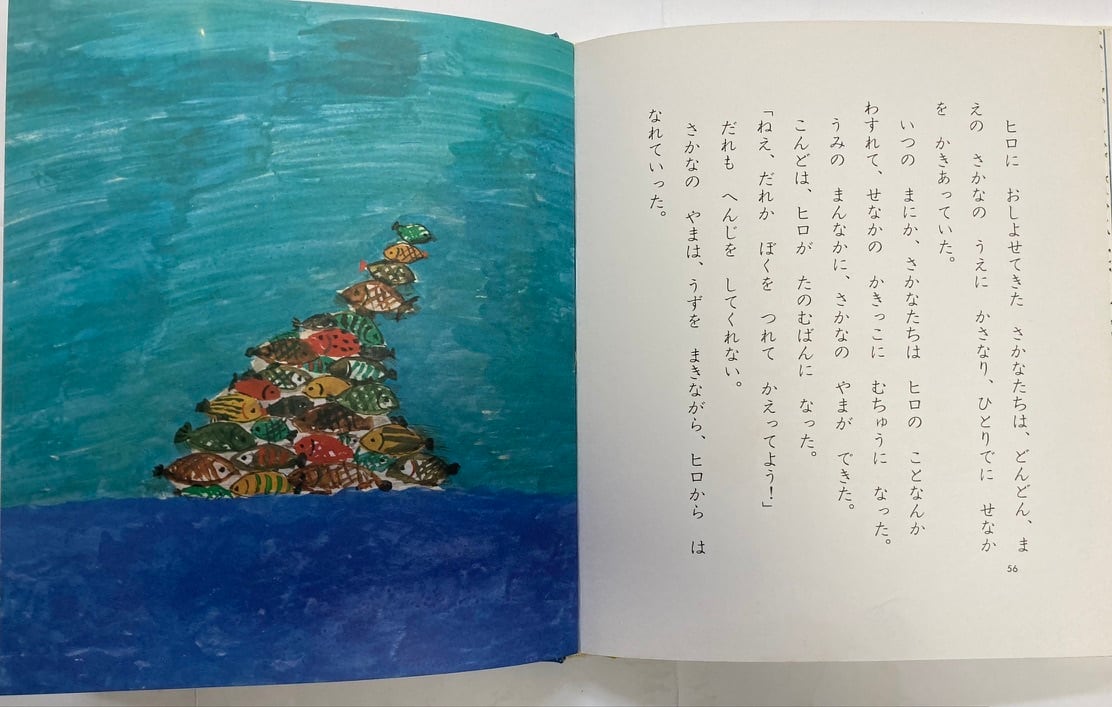 ヒロに　おしよせてきた　さかなたちは、どんどん、ま
えの　さかなの　うえに　かさなり、ひとりでに　せなか
を　かきあっていた。
いつの　まにか、さかなたちは　ヒロの　ことなんか
わすれて、せなかの　かきっこに　むちゅうに　なった。
うみの　まんなかに、さかなの　やまが　できた。
こんどは、ヒロが　たのむばんに　なった。
「ねえ、だれか　ぼくを　つれて　かえってよう！」
だれも　へんじを　してくれない。
さかなの　やまは、うずを　まきながら、ヒロから　は
なれていった。
56